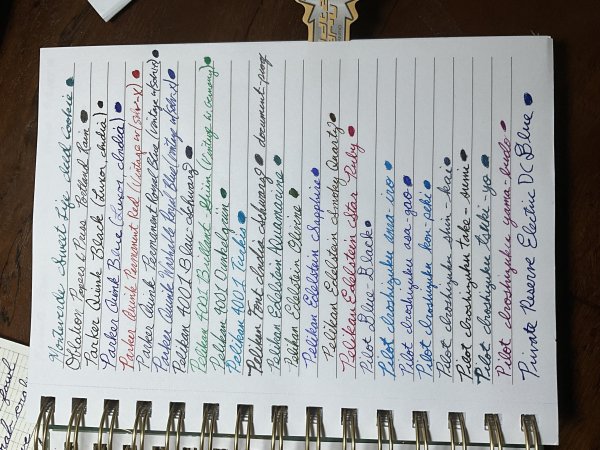 Noodler's Sweet Fig Seed Cookie
Oblation Papers & Press Portland Rain
Parker Quink Black (Luxor India)
Parker Quink Blue (Luxor India)
Parker Quink Permanent Red (vintage w/solv-x)
Parker Quink Permanent Royal Blue (vintage w/solv-x)
Parker Quink Washable Royal Blue (vintage w/solv-x)
Pelikan 4001 Blau-Schwarz
Pelikan 4001 Brillant-Grün (vintage W. Germany)
Pelikan 4001 Dunkelgrün
Pelikan 4001 Türkis
Pelikan Fount India Schwarz document-proof
Pelikan Edelstein Aquamarine
Pelikan Edelstein Olivine
Pelikan Edelstein Sapphire
Pelikan Edelstein Smoky Quartz
Pelikan Edelstein Star Ruby
Pilot Blue-Black
Pilot Iroshizuku ama-iro
Pilot Iroshizuku asa-gao
Pilot Iroshizuku kon-peki
Pilot Iroshizuku shin-kai
Pilot Iroshizuku take-sumi
Pilot Iroshizuku tsuki-yo
Pilot Iroshizuku yama-budo
Private Reserve Electric DC Blue